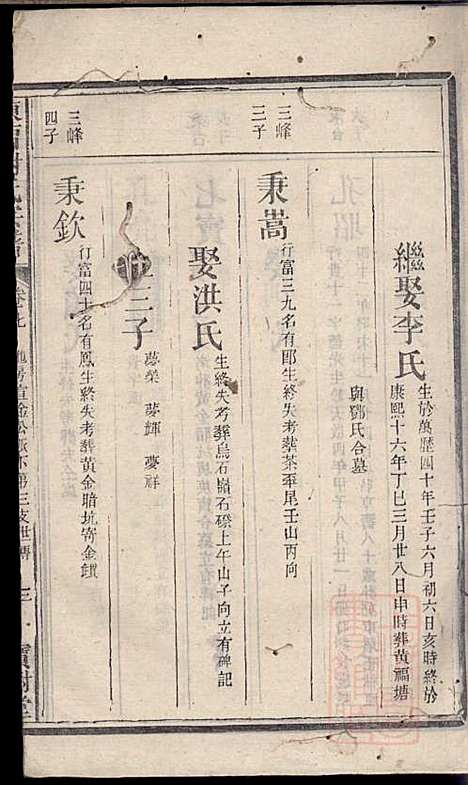 繼娶李氏
生於萬歷四十年壬子六月初六日亥時終於
康熙十六年丁巳三月廿八日申時葬黃福塘
與鄧氏合墓
三峰
三子
秉嵩
行富三九名有郎生終失考葬茶坪尾壬山丙向
娶洪氏
生終失考葬烏石嶺石磜上午山子向立有碑記
三子
夢榮 夢輝 夢祥
三峰
四子
秉欽
行富四十名有鳳生終失考葬黃金暗坑寄金鑵
三
寶樹堂